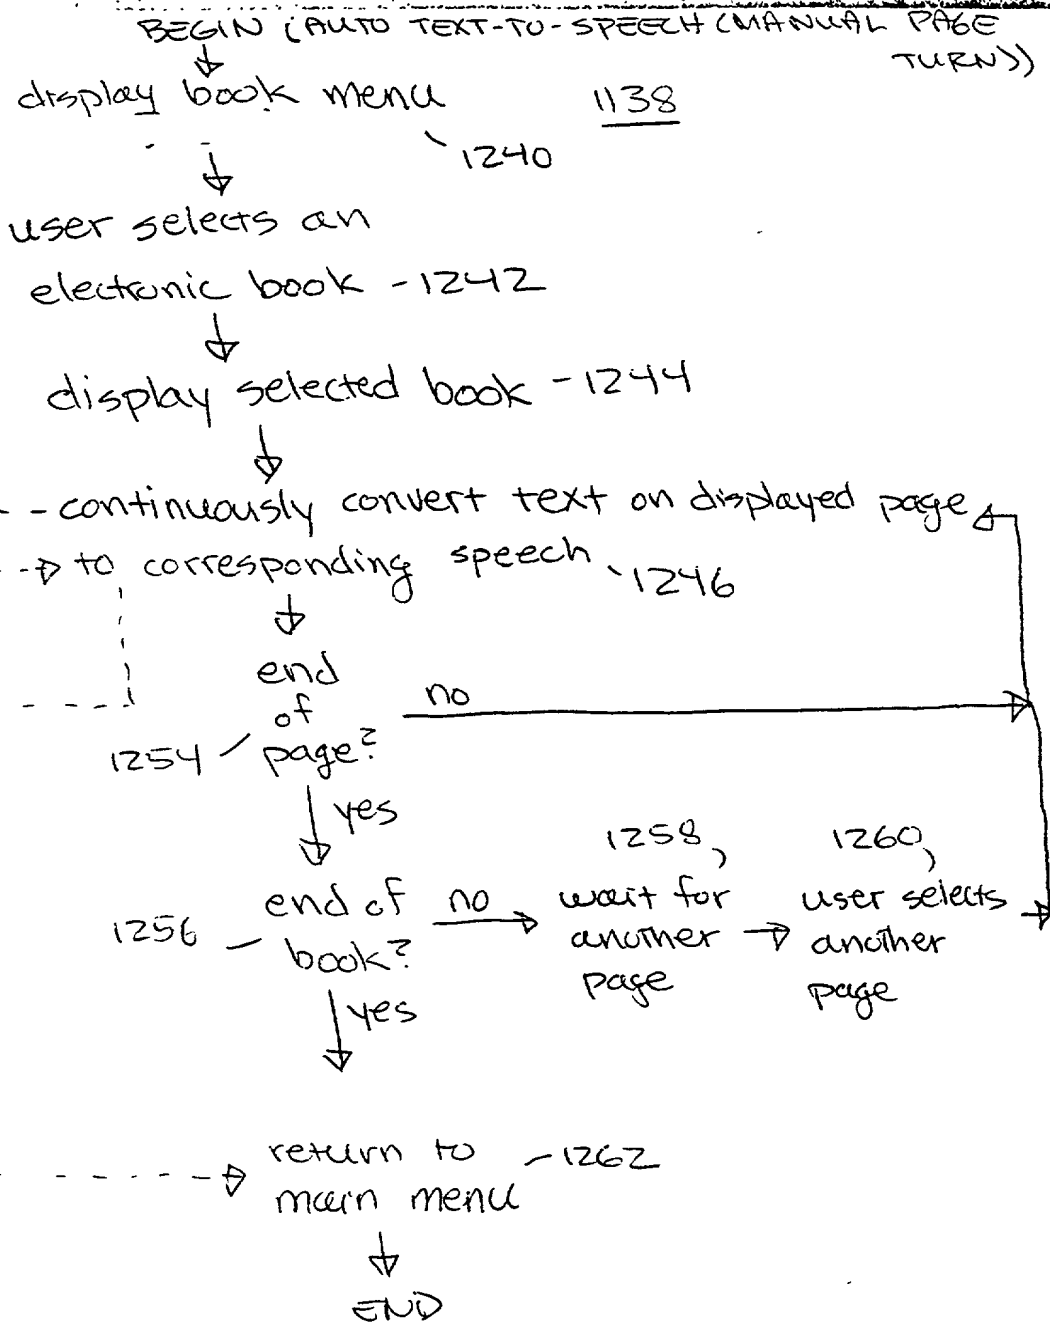 BEGIN (AUTO TEXT-TO-SPEECH (MANUAL PAGE
TURN))
display book menu
1138
1240
user selects an
electronic book - 1242
display selected book - 1244
continuously convert text on displayed page
to corresponding speech
1246
end
of
page?
no
1254
yes
1258
1260
end of
book?
no
1256
wait for
another
page
user selects
another
page
yes
return to
main menu
1262
END